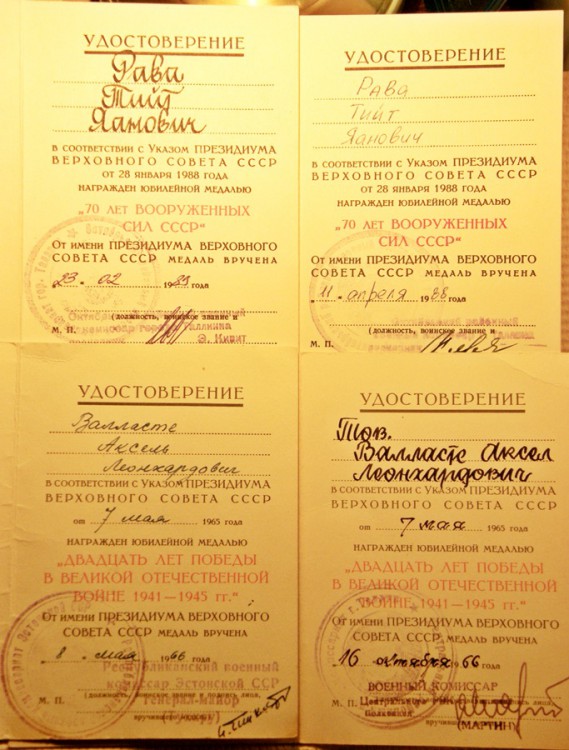 УДОСТОВЕРЕНИЕ
Рава
Тийт
Яанович
в соответствии с Указом ПРЕЗИДИУМА
ВЕРХОВНОГО СОВЕТА СССР
от 28 января 1988 года
награжден юбилейной медалью
„70 ЛЕТ ВООРУЖЕННЫХ
СИЛ СССР“
От имени ПРЕЗИДИУМА ВЕРХОВНОГО
СОВЕТА СССР медаль вручена
23 02 1989 года
(должность, воинское звание и
Таллина
М. П.
УДОСТОВЕРЕНИЕ
Рава
Тийт
Яанович
в соответствии с Указом ПРЕЗИДИУМА
ВЕРХОВНОГО СОВЕТА СССР
от 28 января 1988 года
награжден юбилейной медалью
„70 ЛЕТ ВООРУЖЕННЫХ
СИЛ СССР“
От имени ПРЕЗИДИУМА ВЕРХОВНОГО
СОВЕТА СССР медаль вручена
11 апреля 1988 года
(должность, воинское звание и
М. П.
УДОСТОВЕРЕНИЕ
Валласте
Аксель
Леонхардович
в соответствии с Указом ПРЕЗИДИУМА
ВЕРХОВНОГО СОВЕТА СССР
от 7 мая 1965 года
награжден юбилейной медалью
„ДВАДЦАТЬ ЛЕТ ПОБЕДЫ
В ВЕЛИКОЙ ОТЕЧЕСТВЕННОЙ
ВОЙНЕ 1941—1945 гг.“
От имени ПРЕЗИДИУМА ВЕРХОВНОГО
СОВЕТА СССР медаль вручена
8 мая 1966 года
Республиканский военный
комиссар Эстонской ССР
М. П. (должность, воинское звание и подпись лица,
Генерал-майор
УДОСТОВЕРЕНИЕ
Тов.
Валласте Аксел
Леонхардович
в соответствии с Указом ПРЕЗИДИУМА
ВЕРХОВНОГО СОВЕТА СССР
от 7 мая 1965 года
награжден юбилейной медалью
„ДВАДЦАТЬ ЛЕТ ПОБЕДЫ
В ВЕЛИКОЙ ОТЕЧЕСТВЕННОЙ
ВОЙНЕ 1941—1945 гг.“
От имени ПРЕЗИДИУМА ВЕРХОВНОГО
СОВЕТА СССР медаль вручена
16 октября 1966 года
ВОЕННЫЙ КОМИССАР
М. П.